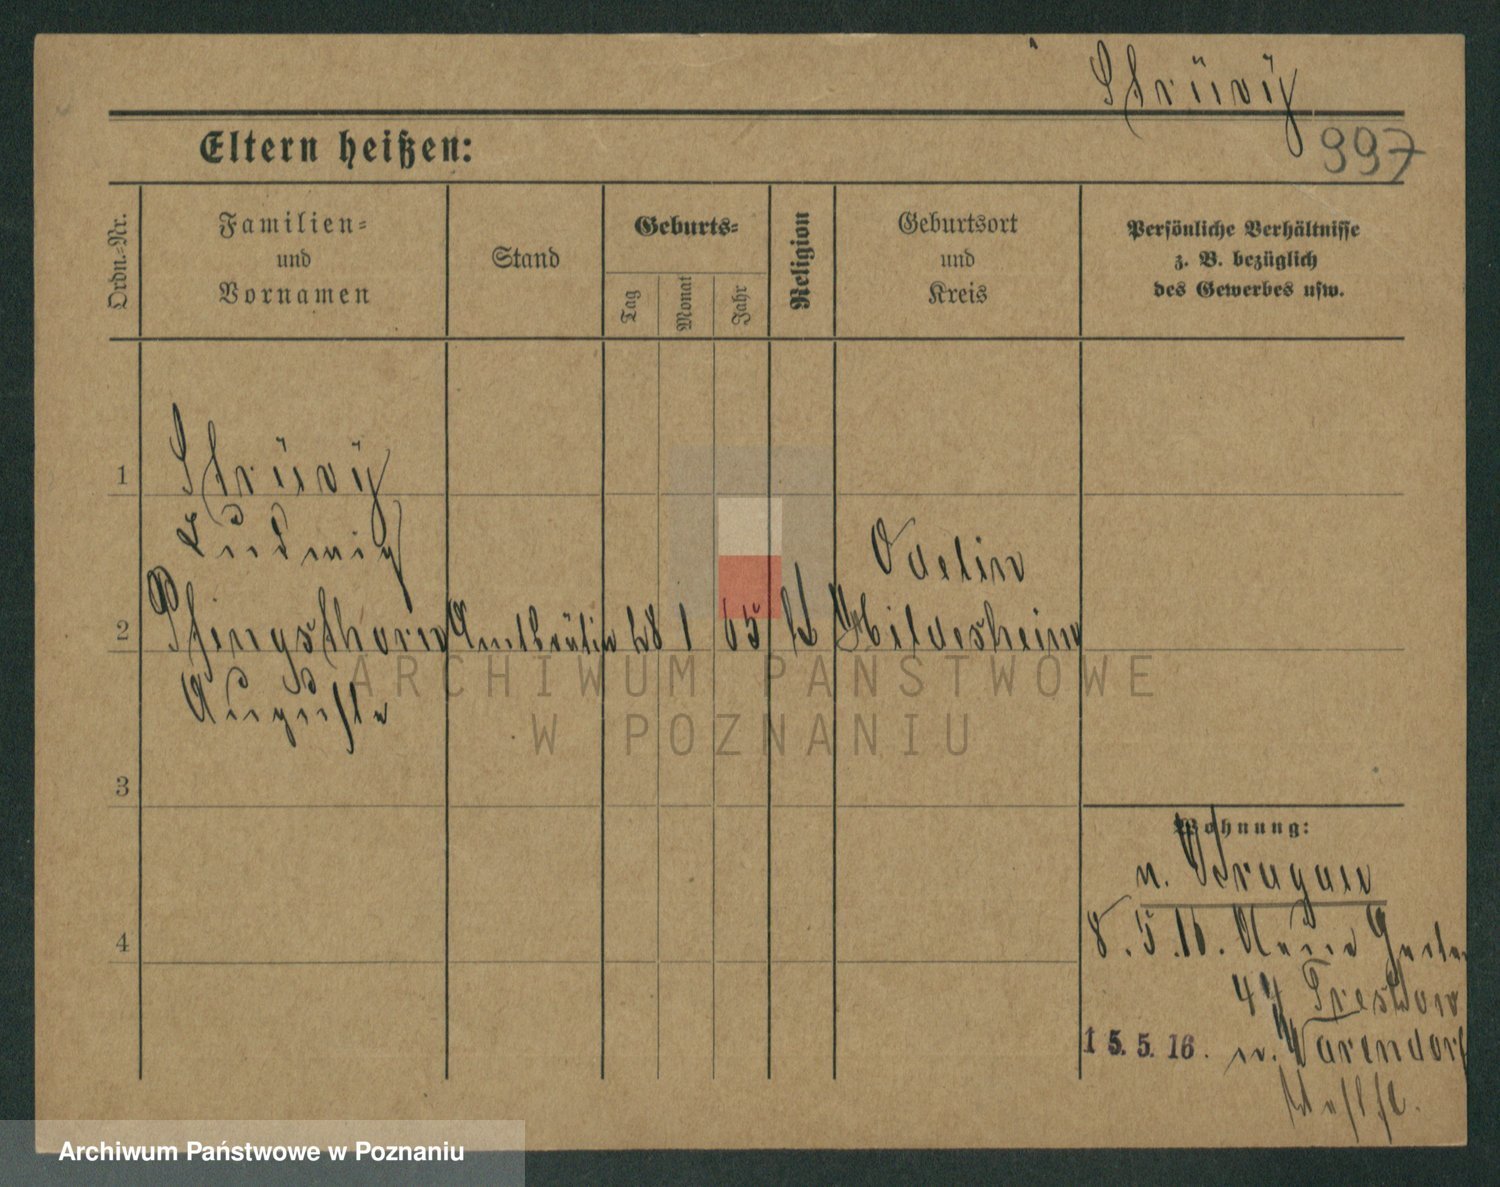 Strüvÿ
997
Eltern heißen:
Ordn.-Nr.
Familien-
und
Vornamen
Stand
Geburts-
Tag
Monat
Jahr
Religion
Geburtsort
und
Kreis
Persönliche Verhältnisse
z. B. bezüglich
des Gewerbes usw.
1
Strüvÿ
Ludwig
2
Pfingsthorn 28 1 65 Hildesheim
Auguste
3
4
Wohnung:
n.
8.5.16.
44 Treskow
15.5.16. n. Warendorf
Westf.
ARCHIWUM PAŃSTWOWE
W POZNANIU
Archiwum Państwowe w Poznaniu